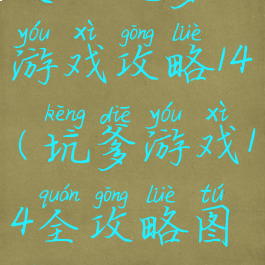 yóu xì gōng lüè
游戏攻略14
kēng diē yóu xì
(坑爹游戏1
quán gōng lüè tú
4全攻略图